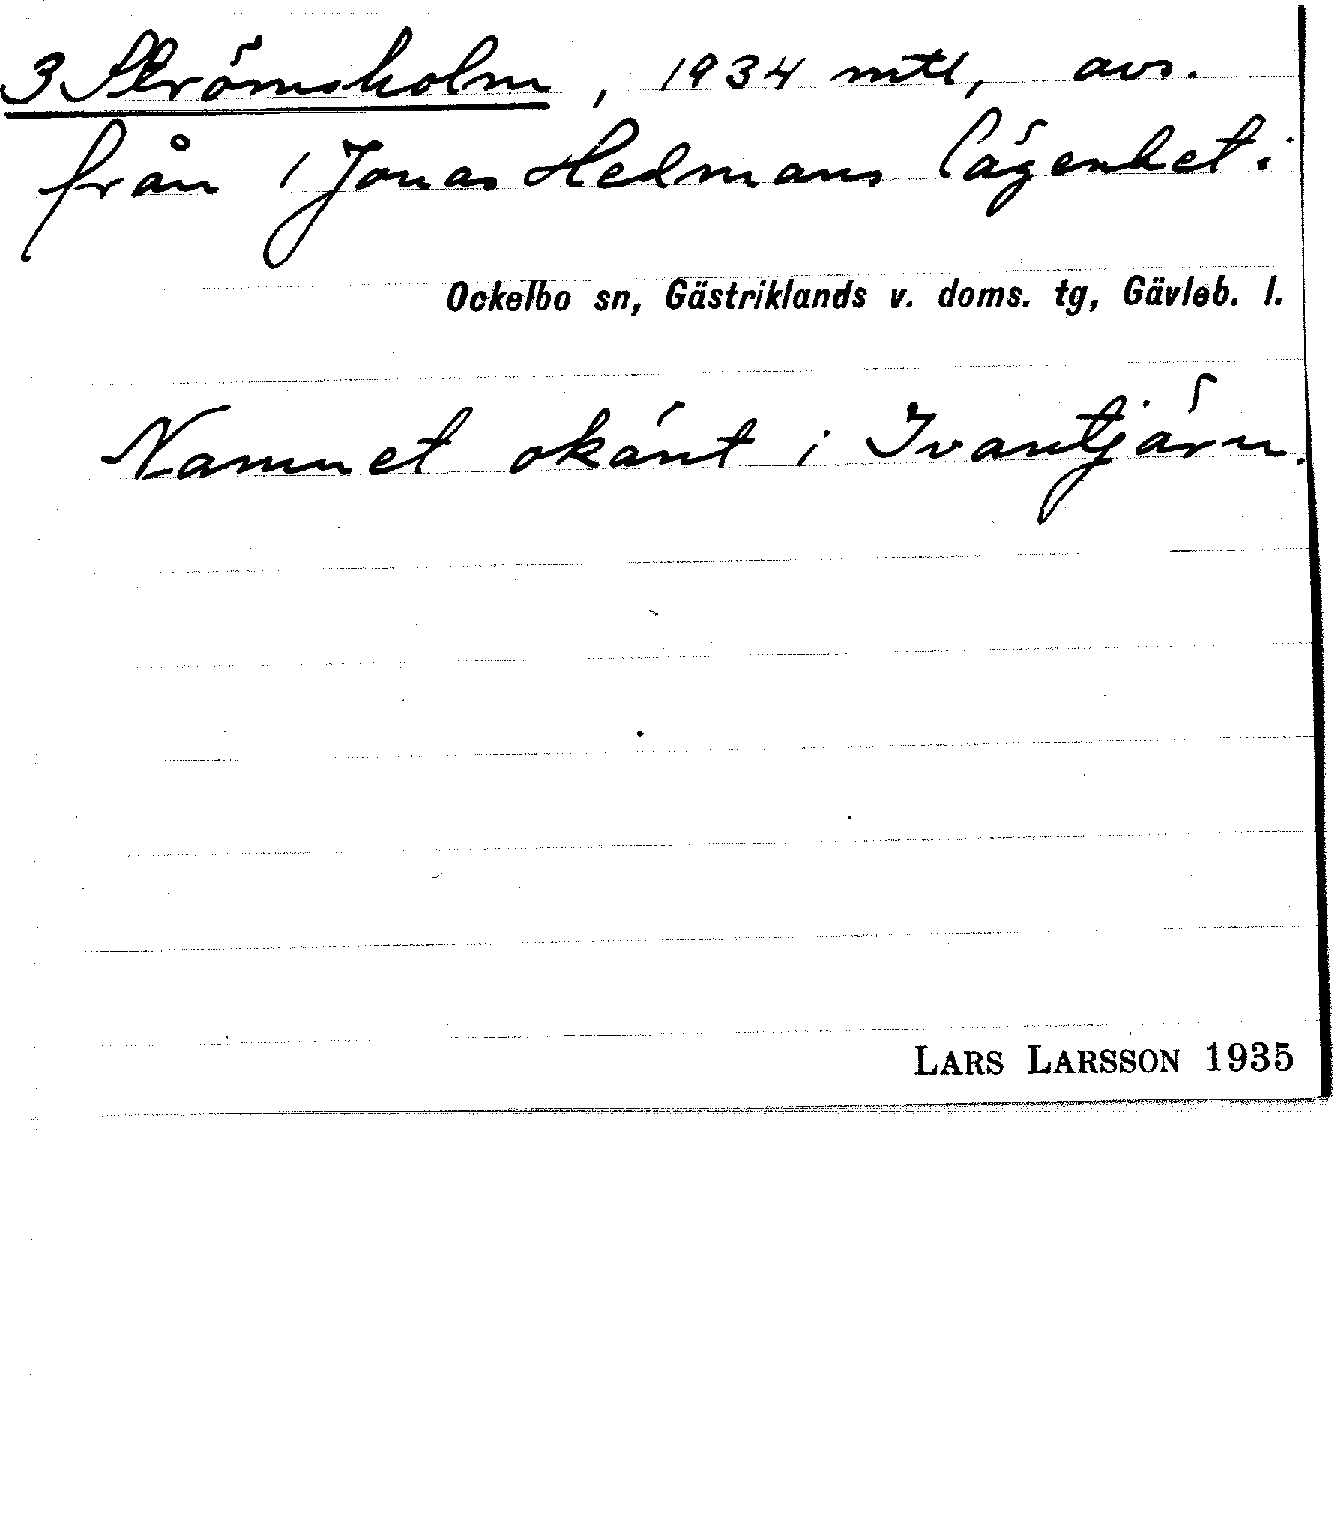 3 Strömsholm, 1934 mtl, avs.
från 1 Jonas Hedmans lägenhet.
Ockelbo sn, Gästriklands v. doms. tg, Gävleb. l.
Namnet okänt i Ivantjärn.
LARS LARSSON 1935